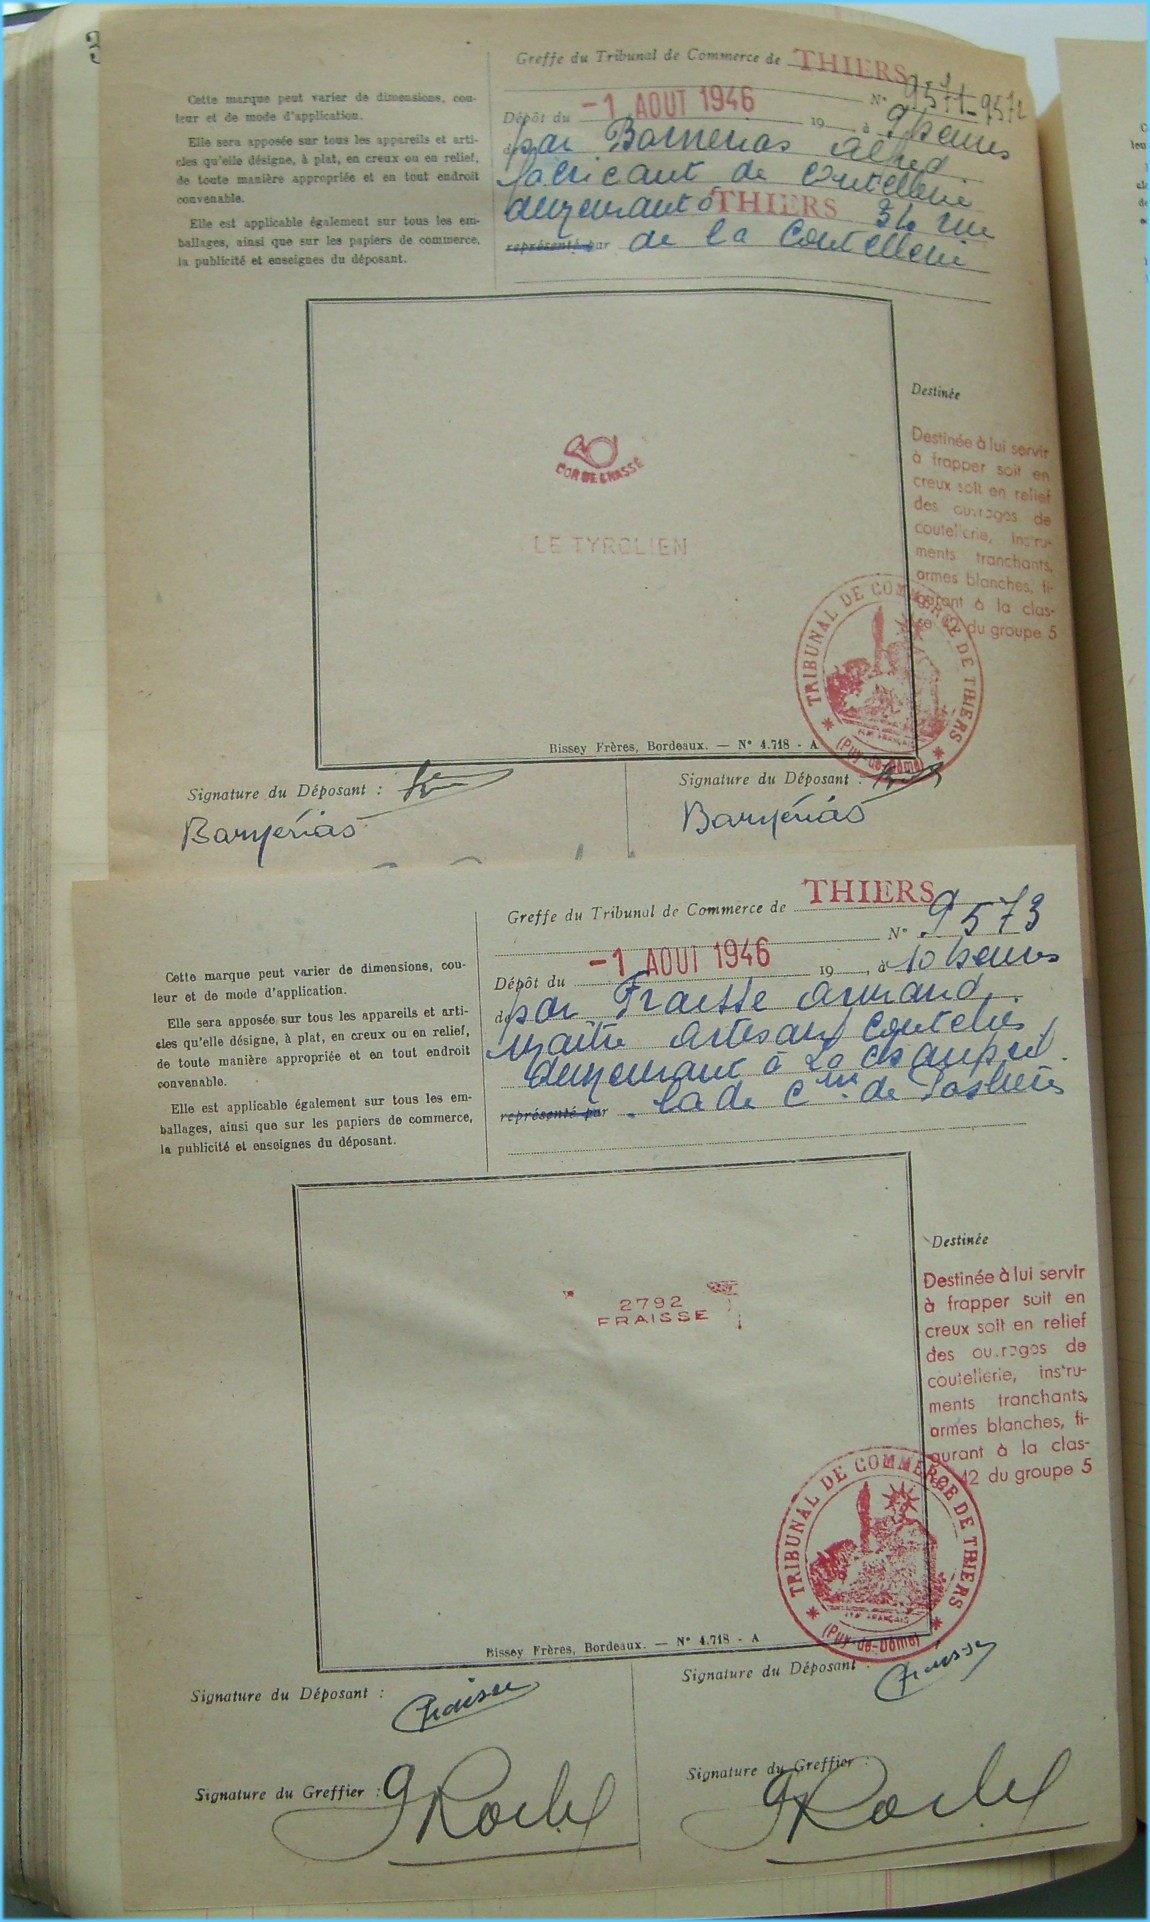 Greffe du Tribunal de Commerce de THIERS
N° 9571-9572
Dépôt du -1 AOUT 1946 19 , à 9 heures
par Barnerias Alfred
fabricant de coutellerie
demeurant à THIERS 34 rue
représenté par de la Coutellerie
Cette marque peut varier de dimensions, cou-
leur et de mode d'application.
Elle sera apposée sur tous les appareils et arti-
cles qu'elle désigne, à plat, en creux ou en relief,
de toute manière appropriée et en tout endroit
convenable.
Elle est applicable également sur tous les em-
ballages, ainsi que sur les papiers de commerce,
la publicité et enseignes du déposant.
COR DE CHASSE
LE TYROLIEN
Destinée
Destinée à lui servir
à frapper soit en
creux soit en relief
des ouvrages de
coutellerie, instru-
ments tranchants,
armes blanches, fi-
gurant à la clas-
se 12 du groupe 5
TRIBUNAL DE COMMERCE DE THIERS
(Puy-de-Dôme)
Bissey Frères, Bordeaux. — N° 4.718 - A
Signature du Déposant :
Barnérias
Signature du Déposant :
Barnérias
Greffe du Tribunal de Commerce de THIERS
N° 9573
Dépôt du -1 AOUT 1946 19 , à 10 heures
de par Fraisse Armand
maître artisan coutelier
demeurant à
représenté par la de Cne de
Cette marque peut varier de dimensions, cou-
leur et de mode d'application.
Elle sera apposée sur tous les appareils et arti-
cles qu'elle désigne, à plat, en creux ou en relief,
de toute manière appropriée et en tout endroit
convenable.
Elle est applicable également sur tous les em-
ballages, ainsi que sur les papiers de commerce,
la publicité et enseignes du déposant.
2792
FRAISSE
Destinée
Destinée à lui servir
à frapper soit en
creux soit en relief
des ouvrages de
coutellerie, instru-
ments tranchants,
armes blanches, fi-
gurant à la clas-
12 du groupe 5
TRIBUNAL DE COMMERCE DE THIERS
(Puy-de-Dôme)
Bissey Frères, Bordeaux. — N° 4.718 - A
Signature du Déposant :
Fraisse
Signature du Déposant :
Fraisse
Signature du Greffier :
Signature du Greffier :